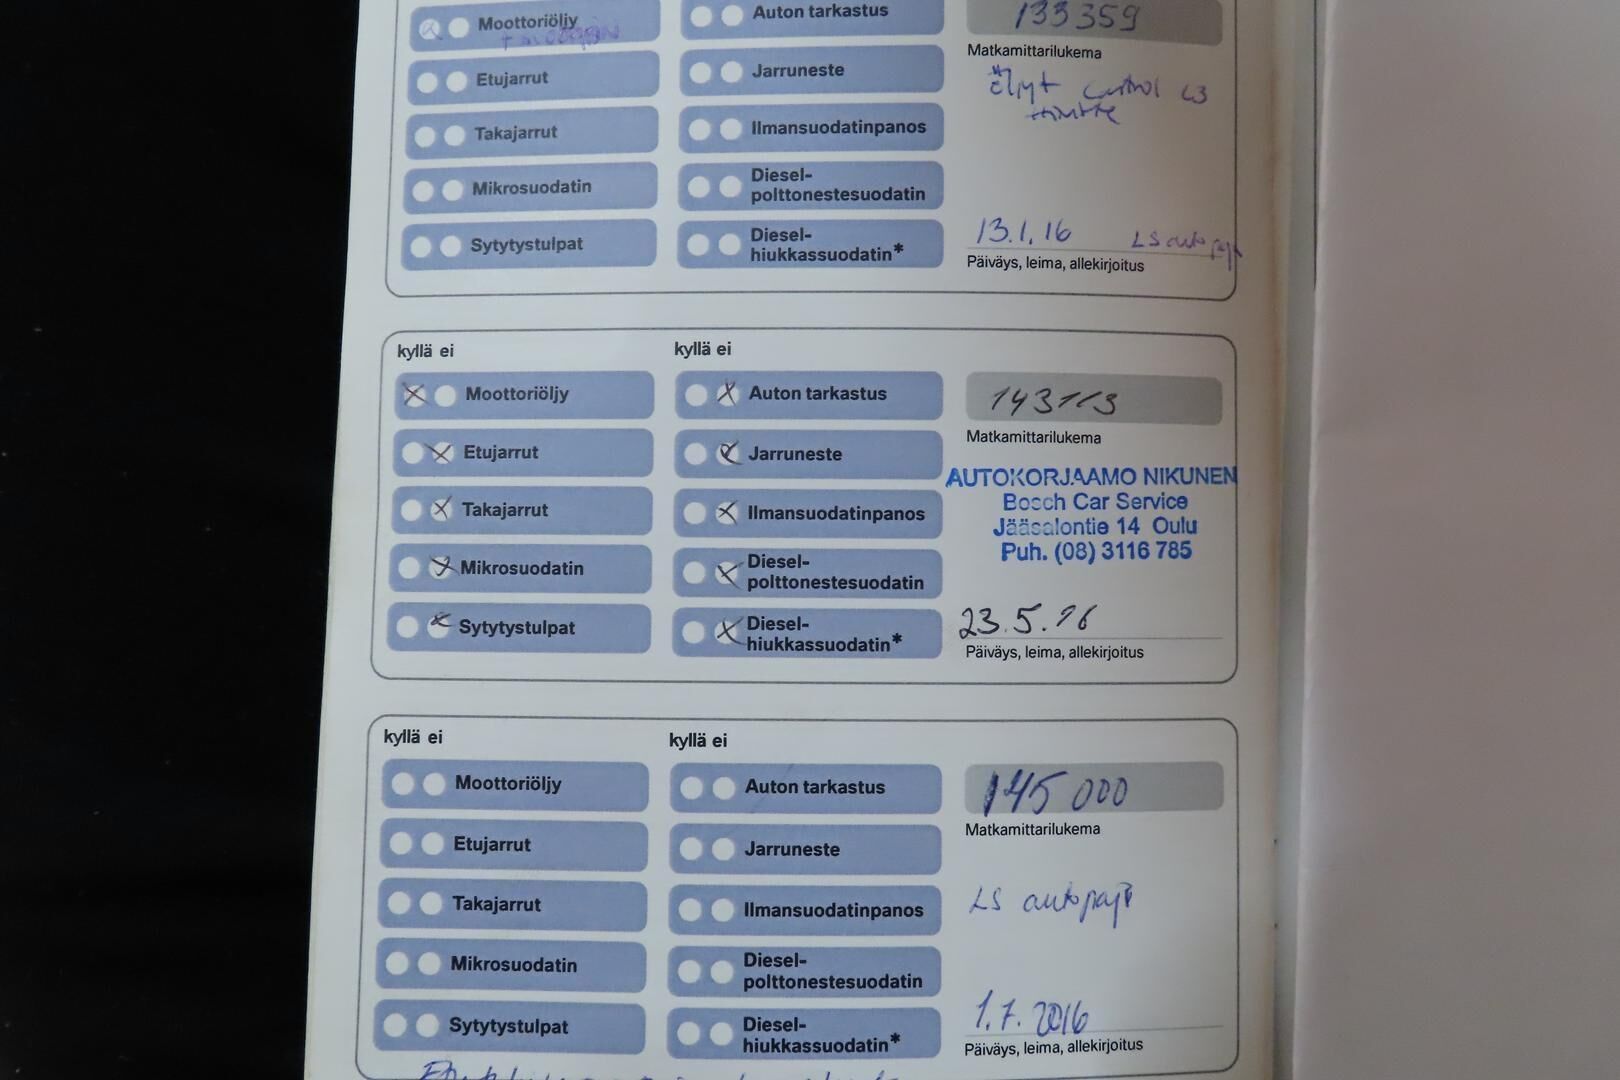 Moottoriöljy
Etujarrut
Takajarrut
Mikrosuodatin
Sytytystulpat
Auton tarkastus
Jarruneste
Ilmansuodatinpanos
Diesel-
polttonestesuodatin
Diesel-
hiukkassuodatin*
133359
Matkamittarilukema
13.1.16 LS autopaja
Päiväys, leima, allekirjoitus
kyllä ei
Moottoriöljy
Etujarrut
Takajarrut
Mikrosuodatin
Sytytystulpat
kyllä ei
Auton tarkastus
Jarruneste
Ilmansuodatinpanos
Diesel-
polttonestesuodatin
Diesel-
hiukkassuodatin*
143113
Matkamittarilukema
AUTOKORJAAMO NIKUNEN
Bosch Car Service
Jääsalontie 14 Oulu
Puh. (08) 3116 785
23.5.16
Päiväys, leima, allekirjoitus
kyllä ei
Moottoriöljy
Etujarrut
Takajarrut
Mikrosuodatin
Sytytystulpat
kyllä ei
Auton tarkastus
Jarruneste
Ilmansuodatinpanos
Diesel-
polttonestesuodatin
Diesel-
hiukkassuodatin*
145 000
Matkamittarilukema
LS autopaja
1.7.2016
Päiväys, leima, allekirjoitus